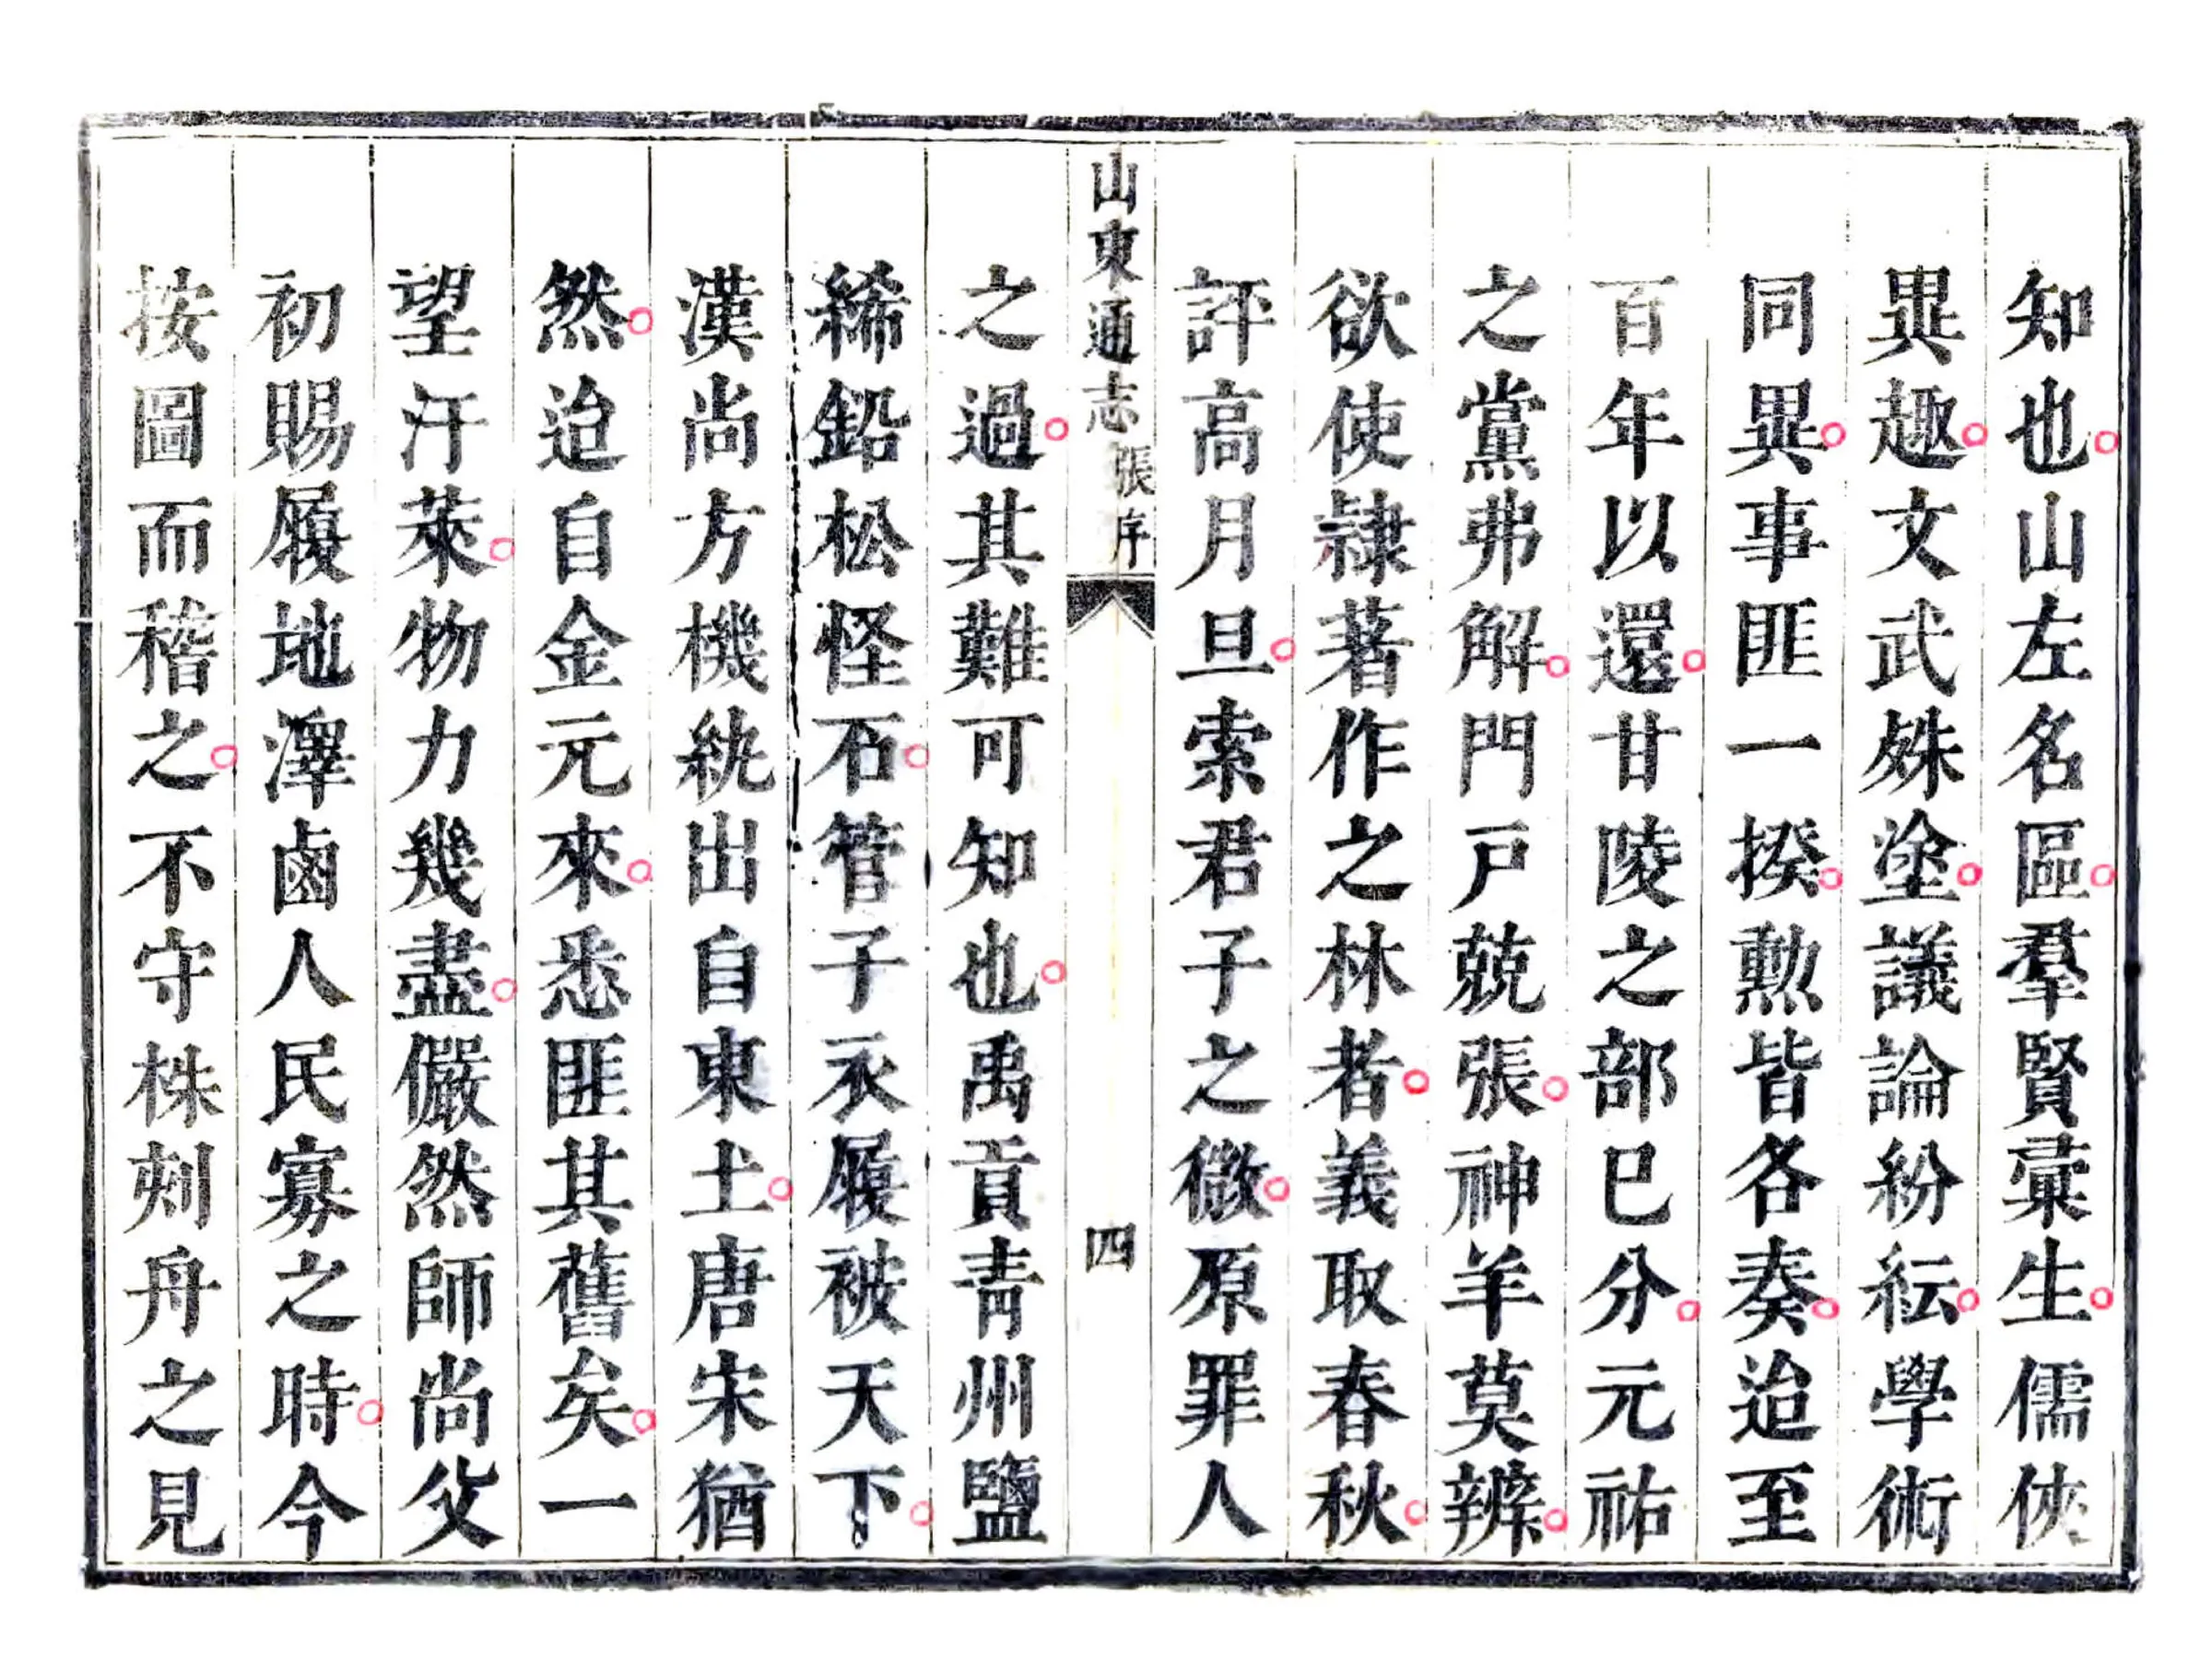 知也。山左名區。羣賢彙生。儒俠
異趣。文武殊塗。議論紛紜。學術
同異。事匪一揆。勲皆各奏。迨至
百年以還。甘陵之部已分。元祐
之黨弗解。門戸兢張。神羊莫辨。
欲使隷著作之林者。義取春秋。
評高月旦。索君子之微。原罪人
山東通志 張序 四
之過。其難可知也。禹貢青州鹽
絺鉛松怪石。管子衣履被天下。
漢尚方機綂出自東土。唐宋猶
然。迨自金元來。悉匪其舊矣。一
望汙萊。物力幾盡。儼然師尚父
初賜履地澤鹵人民寡之時。今
按圖而稽之。不守株刻舟之見